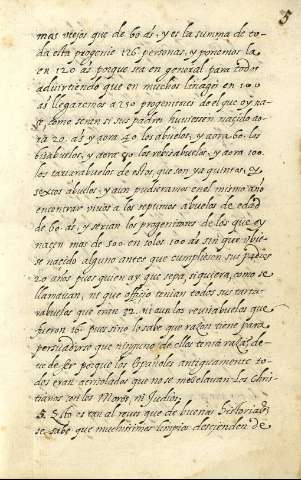 5
mas viejos que de 60 as, y es la summa de to
da esta progenie 126 personas, y ponemos la
en 120 as porque sea en general para todos
advirtiendo que en muchos linages en 100
as llegaremos a 250 progenitores de el que oy na
ce como seren si sus padres huviessen nacido ao
ra 20 as y aora 40 los abuelos, y aora 60 los
bisabuelos, y aora 80 los rebisabuelos, y aora 100
los tatarabuelos de estos, que son ya quintos, y
sextos abuelos, y aun pudieramos en el mismo año
encontrar vivos a los septimos abuelos de edad
de 60 as, y serian los progenitores de los que oy
nacen mas de 500 en solos 100 as sin que ubie
se nacido alguno antes que cumpliesen sus padres
20 años pues quien ay que sepa, siquiera, como se
llamavan, ni que officio tenian todos sus tarta
rabuelos que eran 32, ni aun los revisabuelos que
fueron 16 pues sino lo sabe que razon tiene para
persuadirse que ninguno de ellos tenia raza, de
feto de fe porque los Españoles antiguamente to
dos eran acrisolados que no se mesclavan los Chris
tianos con los Moros, ni Judios,
5. Esto es tan al reves que de buenas historias
se sabe que muchissimos limpios descienden de